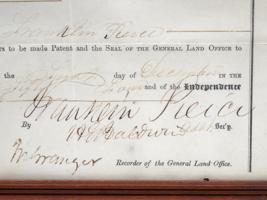 Franklin Pierce
ers to be made Patent and the SEAL OF THE GENERAL LAND OFFICE to
the day of December IN THE
and of the Independence
Franklin Pierce
By H E Baldwin Sec'y.
N Granger Recorder of the General Land Office.